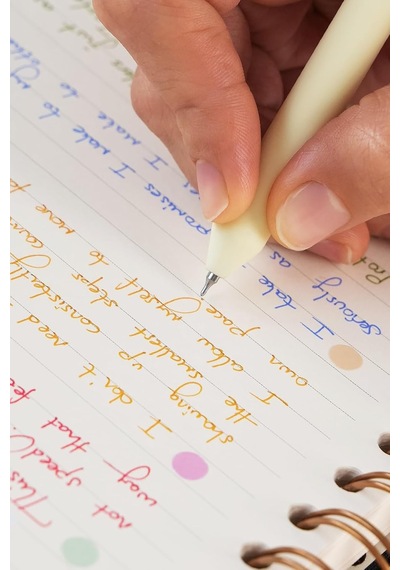 This
not speed
way that
I don't need
showing up consistently
the smallest steps
I allow myself to move
own pace
I take promises I make to my
seriously as I make to
just